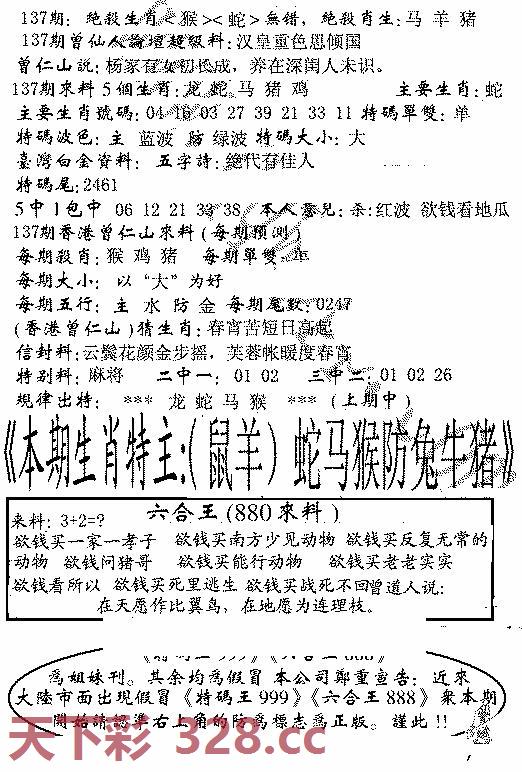 137期: 绝殺生肖<猴><蛇>無错, 绝殺肖生:马 羊 猪
137期曾仙人論壇超級料:汉皇重色思倾国
曾仁山説:杨家有女初长成, 养在深闺人未识。
137期來料5個生肖:龙 蛇 马 猪 鸡 主要生肖:蛇
主要生肖號碼:04 16 03 27 39 21 33 11 特碼單雙:单
特碼波色: 主 蓝波 防 绿波 特碼大小: 大
臺灣白金資料: 五字詩:绝代有佳人
特碼尾:2461
5中1包中 06 12 21 33 38 本人意見:杀:红波 欲钱看地瓜
137期香港曾仁山來料(每期預測)
每期殺肖:猴 鸡 猪 每期單雙:单
每期大小: 以“大”为好
每期五行: 主 水 防 金 每期尾数:0247
(香港曾仁山)猜生肖:春宵苦短日高起
信封料:云鬓花颜金步摇, 芙蓉帐暖度春宵
特别料:麻将 二中一: 01 02 三中二: 01 02 26
规律出特: *** 龙 蛇 马 猴 *** (上期中)
《本期生肖特主:(鼠羊) 蛇马猴防兔牛猪》
六合王(880來料)
来料: 3+2=?
欲钱买一家一孝子 欲钱买南方少见动物 欲钱买反复无常的
动物 欲钱问猪哥 欲钱买能行动物 欲钱买老老实实
欲钱看所以 欲钱买死里逃生 欲钱买战死不回曾道人说:
在天愿作比翼鸟, 在地愿为连理枝。
《特碼王999》《六合王888》
為姐妹刊。其余均為假冒 本公司鄭重宣告: 近來
大陸市面出現假冒《特碼王999》《六合王888》衆本期
開始請認準右上角的防偽標志為正版。謹此!!
天下彩 328.cc